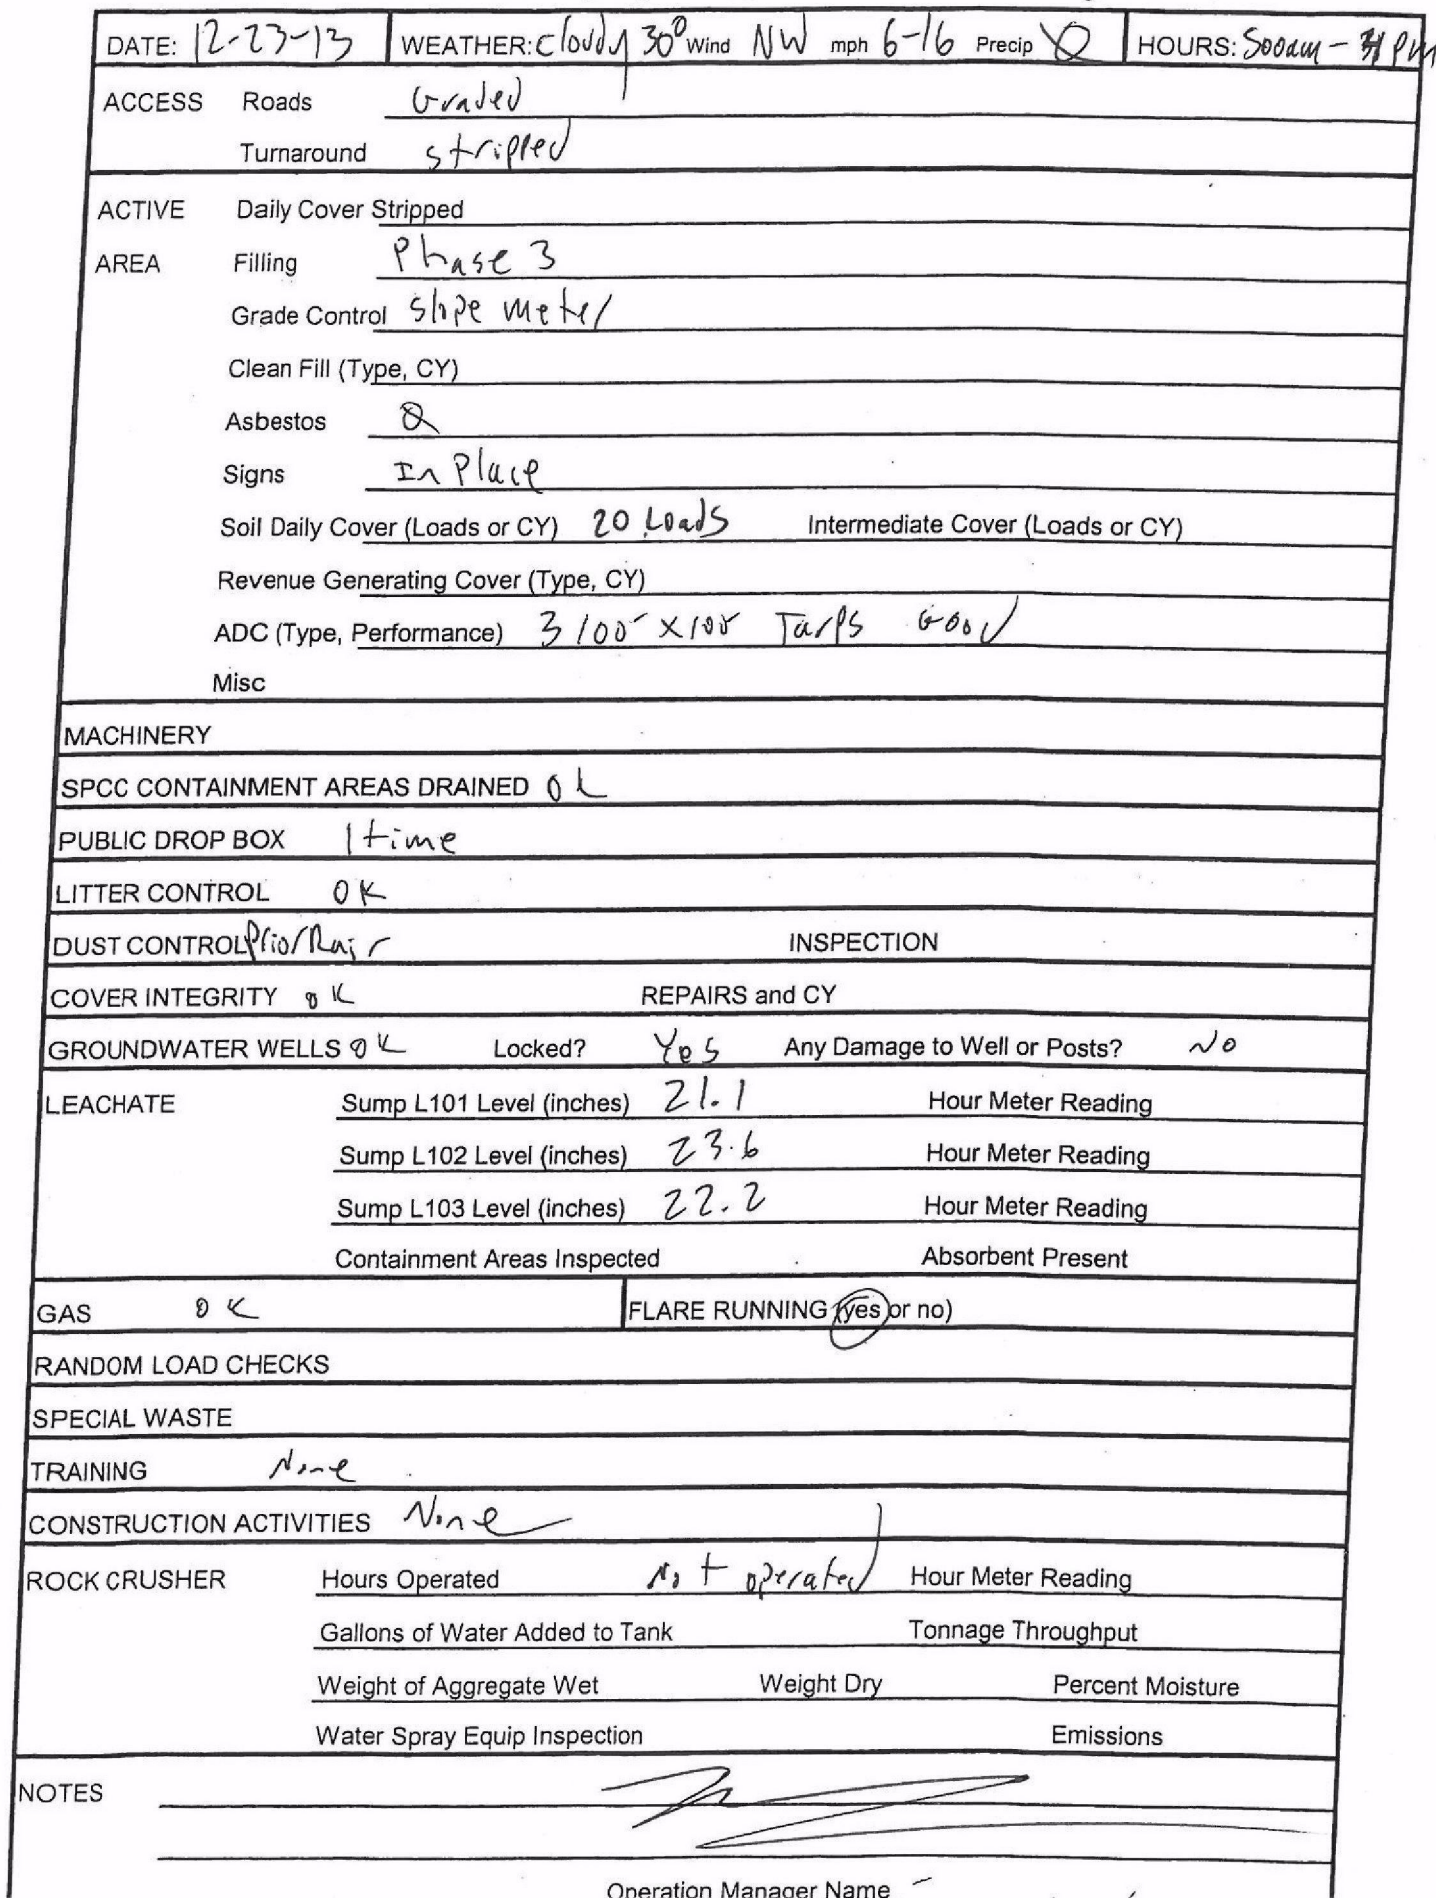 DATE: 12-23-13 WEATHER: Cloudy 30° Wind NW mph 6-16 Precip Ø HOURS: 500am - PM
ACCESS Roads Graded
Turnaround stripped
ACTIVE Daily Cover Stripped
AREA Filling Phase 3
Grade Control slope meter
Clean Fill (Type, CY)
Asbestos Ø
Signs In Place
Soil Daily Cover (Loads or CY) 20 Loads Intermediate Cover (Loads or CY)
Revenue Generating Cover (Type, CY)
ADC (Type, Performance) 3 100' x 100' Tarps Good
Misc
MACHINERY
SPCC CONTAINMENT AREAS DRAINED OK
PUBLIC DROP BOX 1 time
LITTER CONTROL OK
DUST CONTROL Prior Rain INSPECTION
COVER INTEGRITY OK REPAIRS and CY
GROUNDWATER WELLS OK Locked? Yes Any Damage to Well or Posts? No
LEACHATE Sump L101 Level (inches) 21.1 Hour Meter Reading
Sump L102 Level (inches) 23.6 Hour Meter Reading
Sump L103 Level (inches) 22.2 Hour Meter Reading
Containment Areas Inspected Absorbent Present
GAS OK FLARE RUNNING (yes or no)
RANDOM LOAD CHECKS
SPECIAL WASTE
TRAINING None
CONSTRUCTION ACTIVITIES None
ROCK CRUSHER Hours Operated Not operated Hour Meter Reading
Gallons of Water Added to Tank Tonnage Throughput
Weight of Aggregate Wet Weight Dry Percent Moisture
Water Spray Equip Inspection Emissions
NOTES
Operation Manager Name